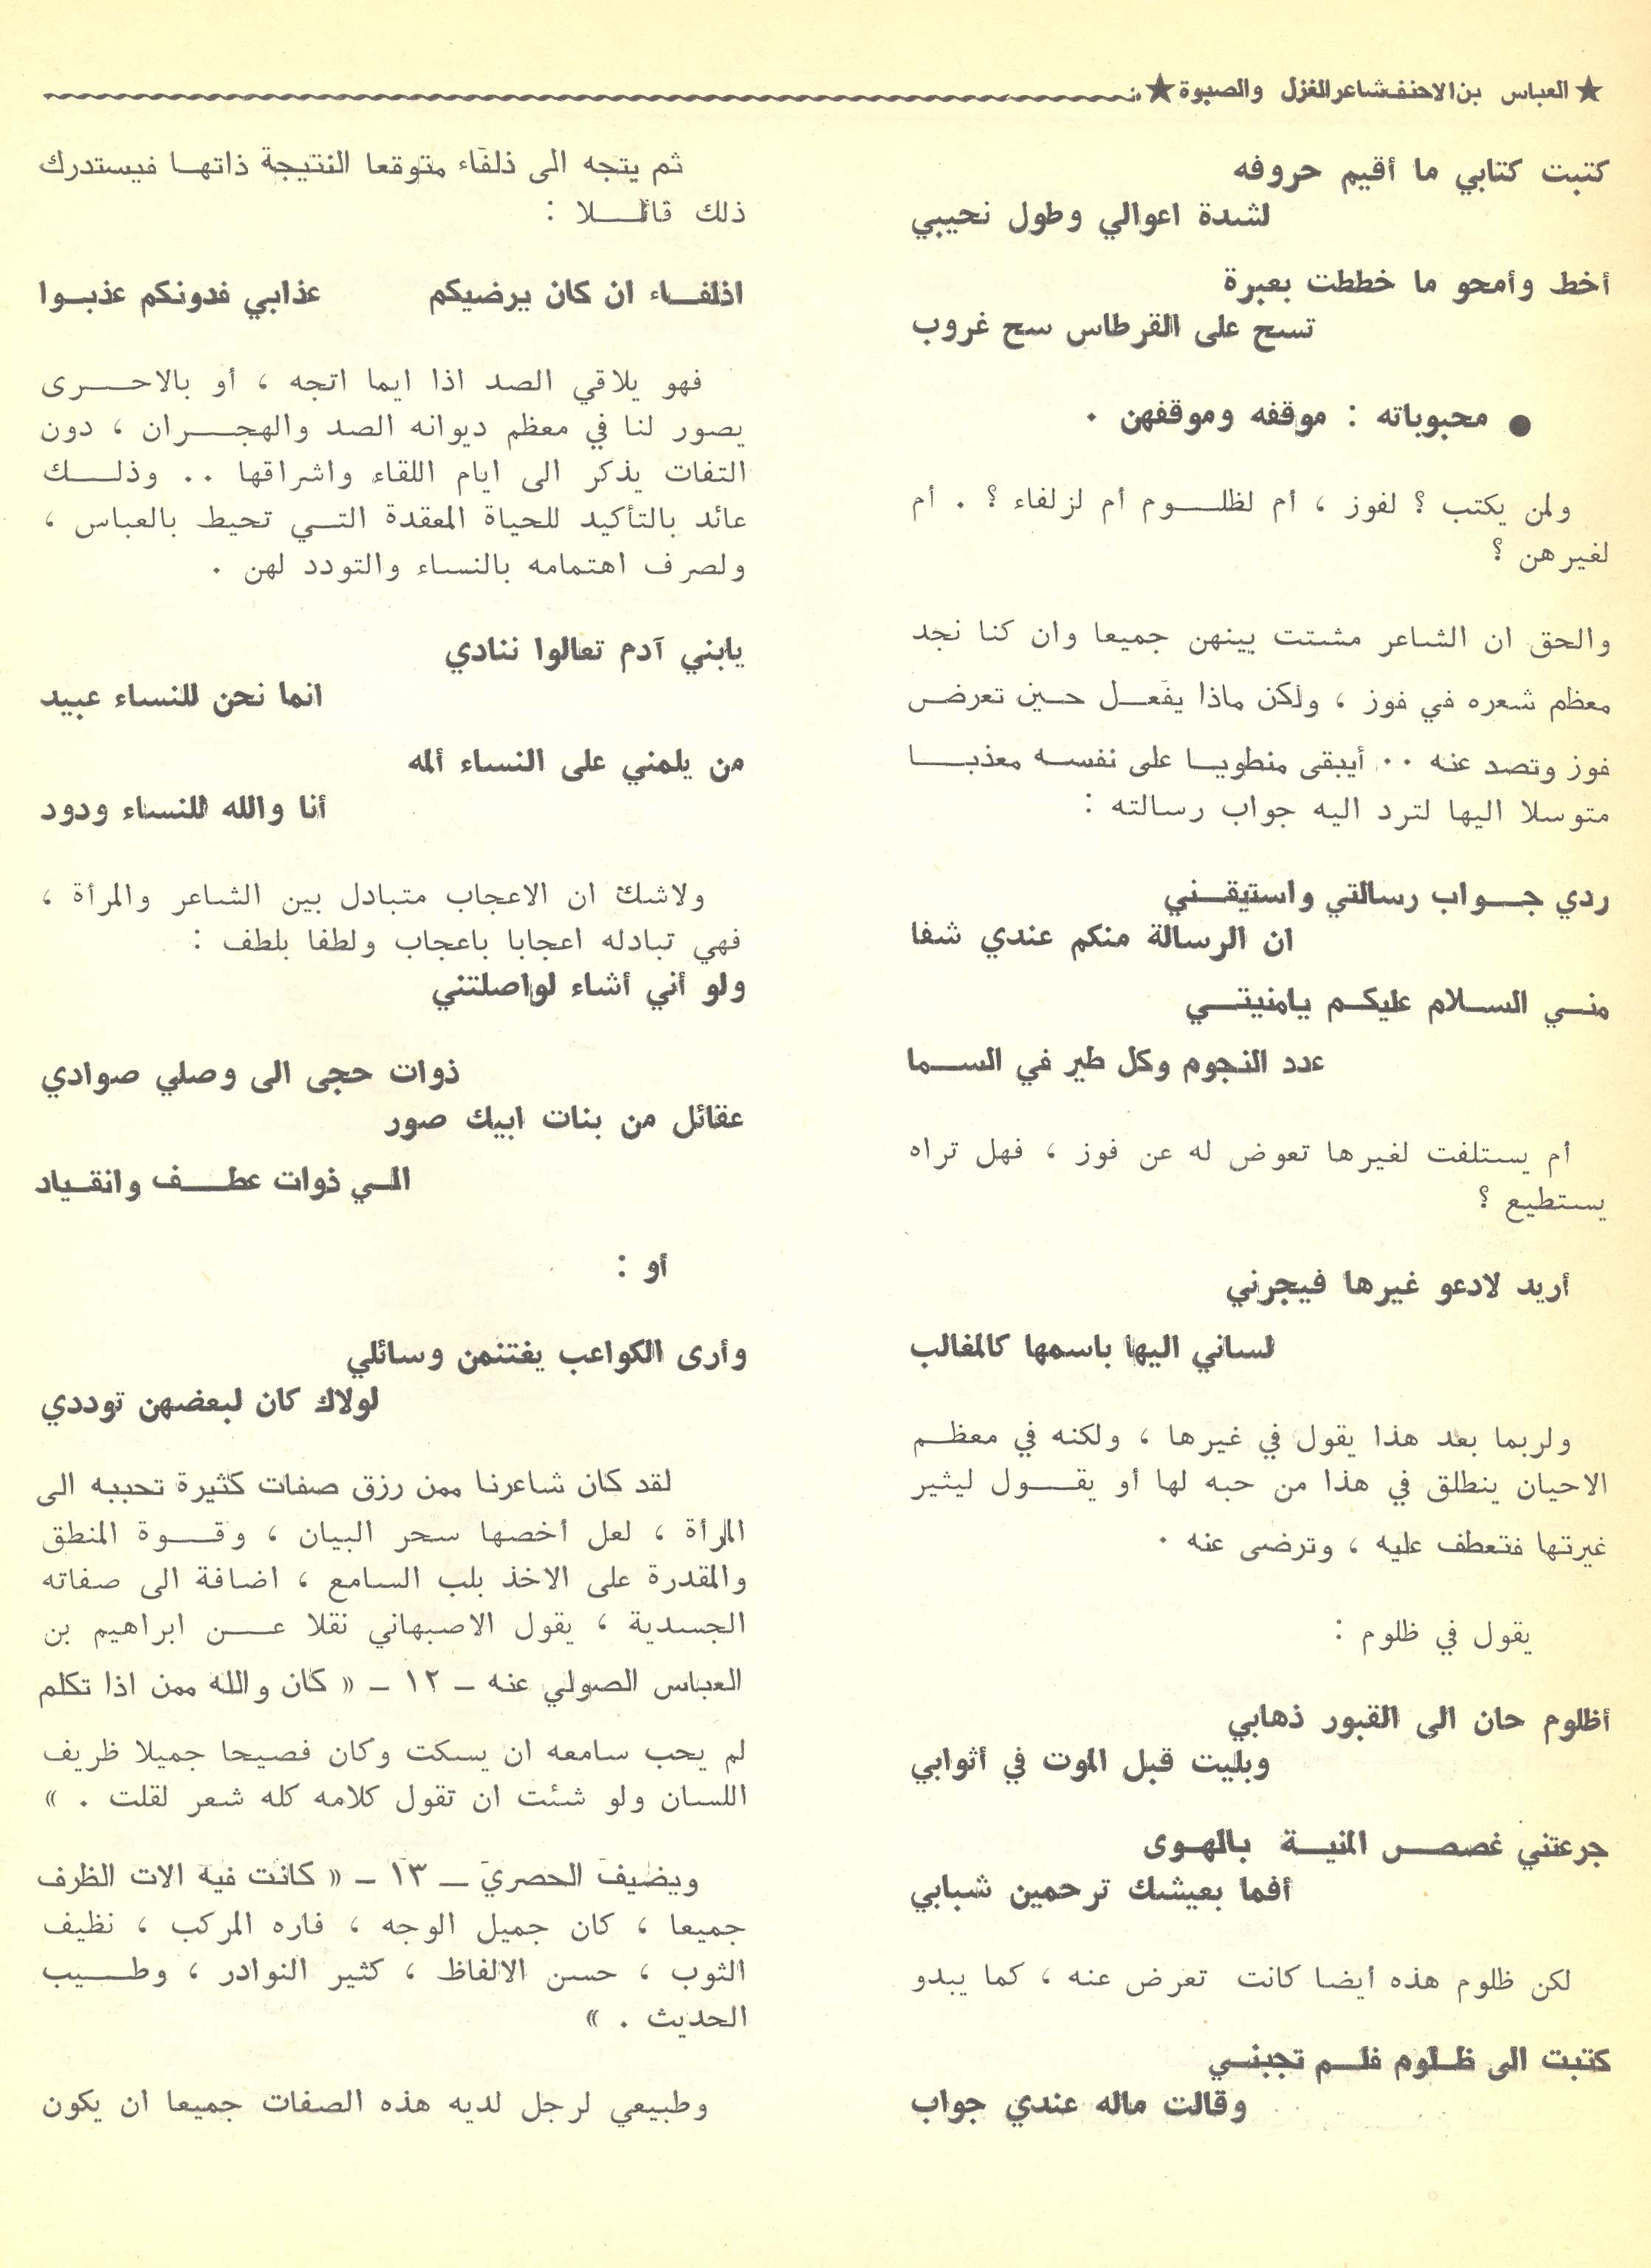 ★ العباس بن الاحنف شاعر الغزل والصبوة ★
كتبت كتابي ما أقيم حروفه
لشدة اعوالي وطول نحيبي
أخط وأمحو ما خططت بعبرة
تسح على القرطاس سح غروب
● محبوباته : موقفه وموقفهن .
ولمن يكتب ؟ لفوز ، أم لظلــوم أم لزلفاء ؟ . أم
لغيرهن ؟
والحق ان الشاعر مشتت بينهن جميعا وان كنا نجد
معظم شعره في فوز ، ولكن ماذا يفعــل حــين تعرض
فوز وتصد عنه .. أيبقى منطويــا على نفســه معذبــا
متوسلا اليها لترد اليه جواب رسالته :
ردي جــواب رسالتي واستيقــني
ان الرسالة منكم عندي شفا
منــي الســلام عليكــم يامنيتــي
عدد النجوم وكل طير في الســما
أم يستلفت لغيرها تعوض له عن فوز ، فهل تراه
يستطيع ؟
أريد لادعو غيرها فيجرني
لساني اليها باسمها كالمغالب
ولربما بعد هذا يقول في غيرها ، ولكنه في معظــم
الاحيان ينطلق في هذا من حبه لها أو يقــول ليثير
غيرتها فتعطف عليه ، وترضى عنه .
يقول في ظلوم :
أظلوم حان الى القبور ذهابي
وبليت قبل الموت في أثوابي
جرعتني غصــص المنيــة بالهــوى
أفما بعيشك ترحمين شبابي
لكن ظلوم هذه أيضا كانت تعرض عنه ، كما يبدو
كتبت الى ظــلوم فلــم تجبنــي
وقالت ماله عندي جواب
ثم يتجه الى ذلفاء متوقعا النتيجة ذاتهــا فيستدرك
ذلك قائــلا :
اذلفــاء ان كان يرضيكم عذابي فدونكم عذبــوا
فهو يلاقي الصد اذا ايما اتجه ، أو بالاحــرى
يصور لنا في معظم ديوانه الصد والهجــران ، دون
التفات يذكر الى ايام اللقاء واشراقها .. وذلــك
عائد بالتأكيد للحياة المعقدة التــي تحيط بالعباس ،
ولصرف اهتمامه بالنساء والتودد لهن .
يابني آدم تعالوا ننادي
انما نحن للنساء عبيد
من يلمني على النساء ألمه
أنا والله للنساء ودود
ولاشك ان الاعجاب متبادل بين الشاعر والمرأة ،
فهي تبادله اعجابا باعجاب ولطفا بلطف :
ولو أني أشاء لواصلتني
ذوات حجى الى وصلي صوادي
عقائل من بنات ابيك صور
الــي ذوات عطــف وانقــياد
أو :
وأرى الكواعب يغتنمن وسائلي
لولاك كان لبعضهن توددي
لقد كان شاعرنا ممن رزق صفات كثيرة تحببه الى
المرأة ، لعل أخصها سحر البيان ، وقــوة المنطق
والمقدرة على الاخذ بلب السامع ، اضافة الى صفاته
الجسدية ، يقول الاصبهاني نقلا عــن ابراهيم بن
العباس الصولي عنه – ١٢ – « كان والله ممن اذا تكلم
لم يحب سامعه ان يسكت وكان فصيحا جميلا ظريف
اللسان ولو شئت ان تقول كلامه كله شعر لقلت . »
ويضيف الحصري – ١٣ – « كانت فيه الات الظرف
جميعا ، كان جميل الوجه ، فاره المركب ، نظيف
الثوب ، حسن الالفاظ ، كثير النوادر ، وطــيب
الحديث . »
وطبيعي لرجل لديه هذه الصفات جميعا ان يكون